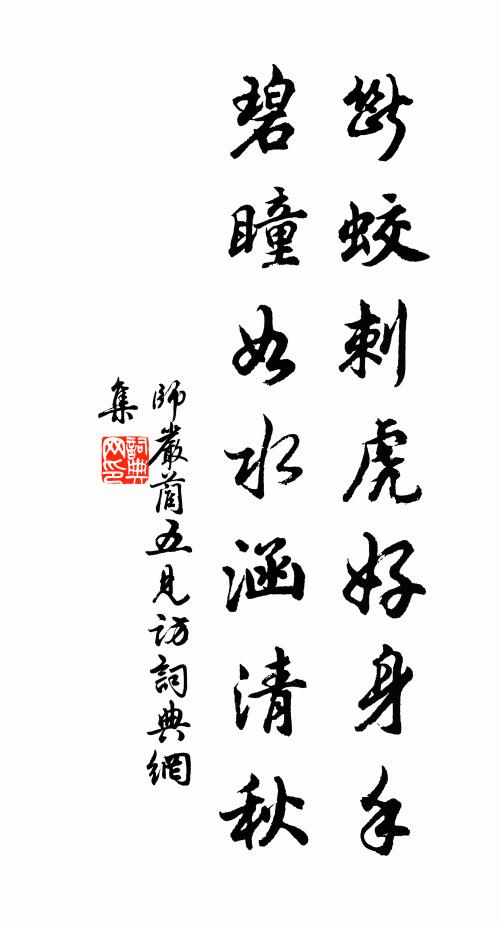 斷蛟刺虎好身手
碧瞳如水涵清秋
師嚴蘭五見訪詞典網
集
詞典
网印